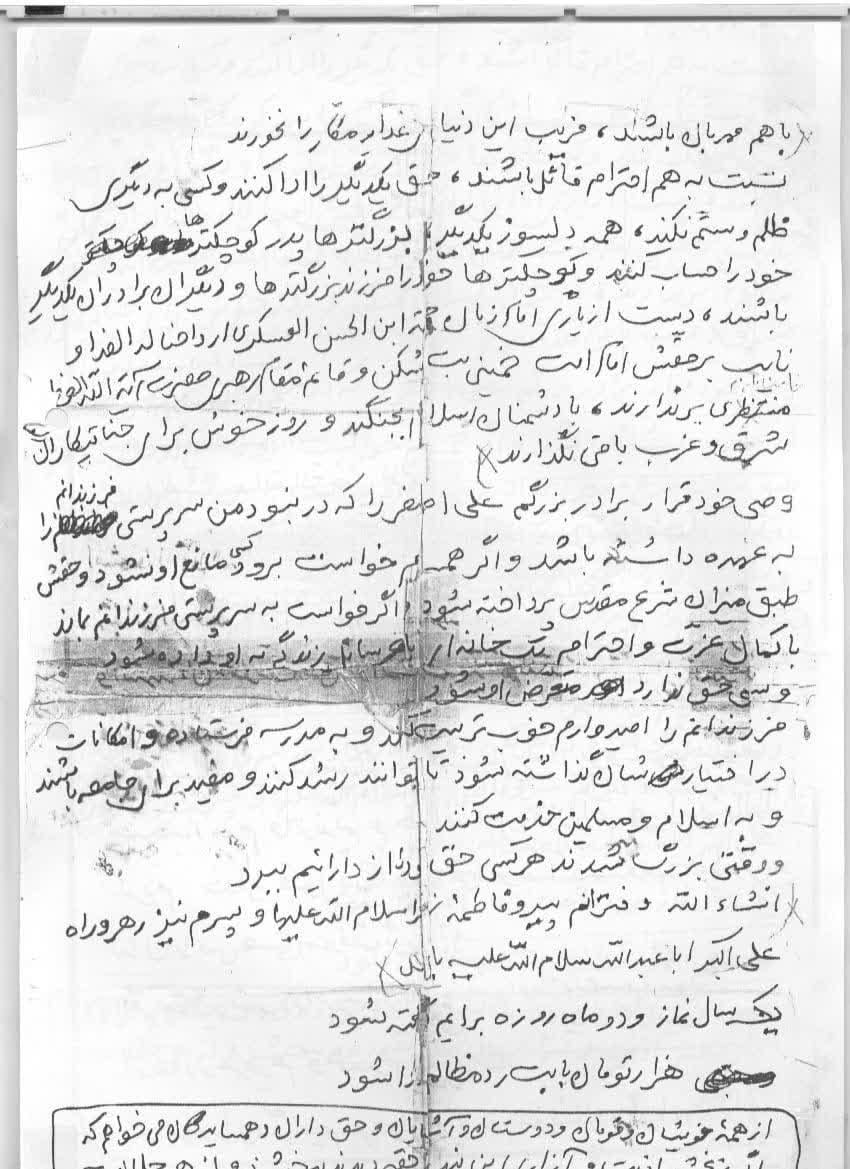 با هم مهربان باشند، فریب این دنیای غدار مکار را نخورند
نسبت به هم احترام قائل باشند، حق یکدیگر را ادا کنند و کسی به دیگری
ظلم و ستم نکند، همه دلسوز یکدیگر، بزرگترها پدر کوچکترها
خود را حساب کنند و کوچکترها خود را فرزند بزرگترها و دیگران برادران یکدیگر
باشند، دست از یاری امام زمان حجة ابن الحسن العسکری ارواحنا له الفدا و
نایب برحقش امام امت خمینی بت شکن و قائم مقام رهبری حضرت آیة الله العظمی
منتظری برندارند، با دشمنان اسلام بجنگند و روز خوش برای جنایتکاران
شرق و غرب باقی نگذارند
وصی خود قرار برادر بزرگم علی اصغر را که در نبود من سرپرستی فرزندانم را
به عهده داشته باشد و اگر همسرم خواست برود کسی مانع او نشود و حقش
طبق میزان شرع مقدس پرداخته شود و اگر خواست به سرپرستی فرزندانم بماند
با کمال عزت و احترام یک خانه از با هر سائل زندگی به او داده شود
و کسی حق ندارد متعرض او شود
فرزندانم را امیدوارم خوب تربیت کند و به مدرسه فرستاده و امکانات
در اختیارشان گذاشته شود تا بتوانند رشد کنند و مفید برای جامعه باشند
و به اسلام و مسلمین خدمت کنند
و وقتی بزرگ شدند هر کسی حق خود را از دارائیم ببرد
انشاء الله دخترانم پیرو فاطمهٔ زهرا سلام الله علیها و پسرم نیز رهرو راه
علی اکبر ابا عبدالله سلام الله علیه باشد
یک سال نماز و دو ماه روزه برایم گرفته شود
هزار تومان بابت رد مظالم ادا شود
از همهٔ خویشان و قومان و دوستان و آشنایان و حق داران و همسایگان می خواهم که